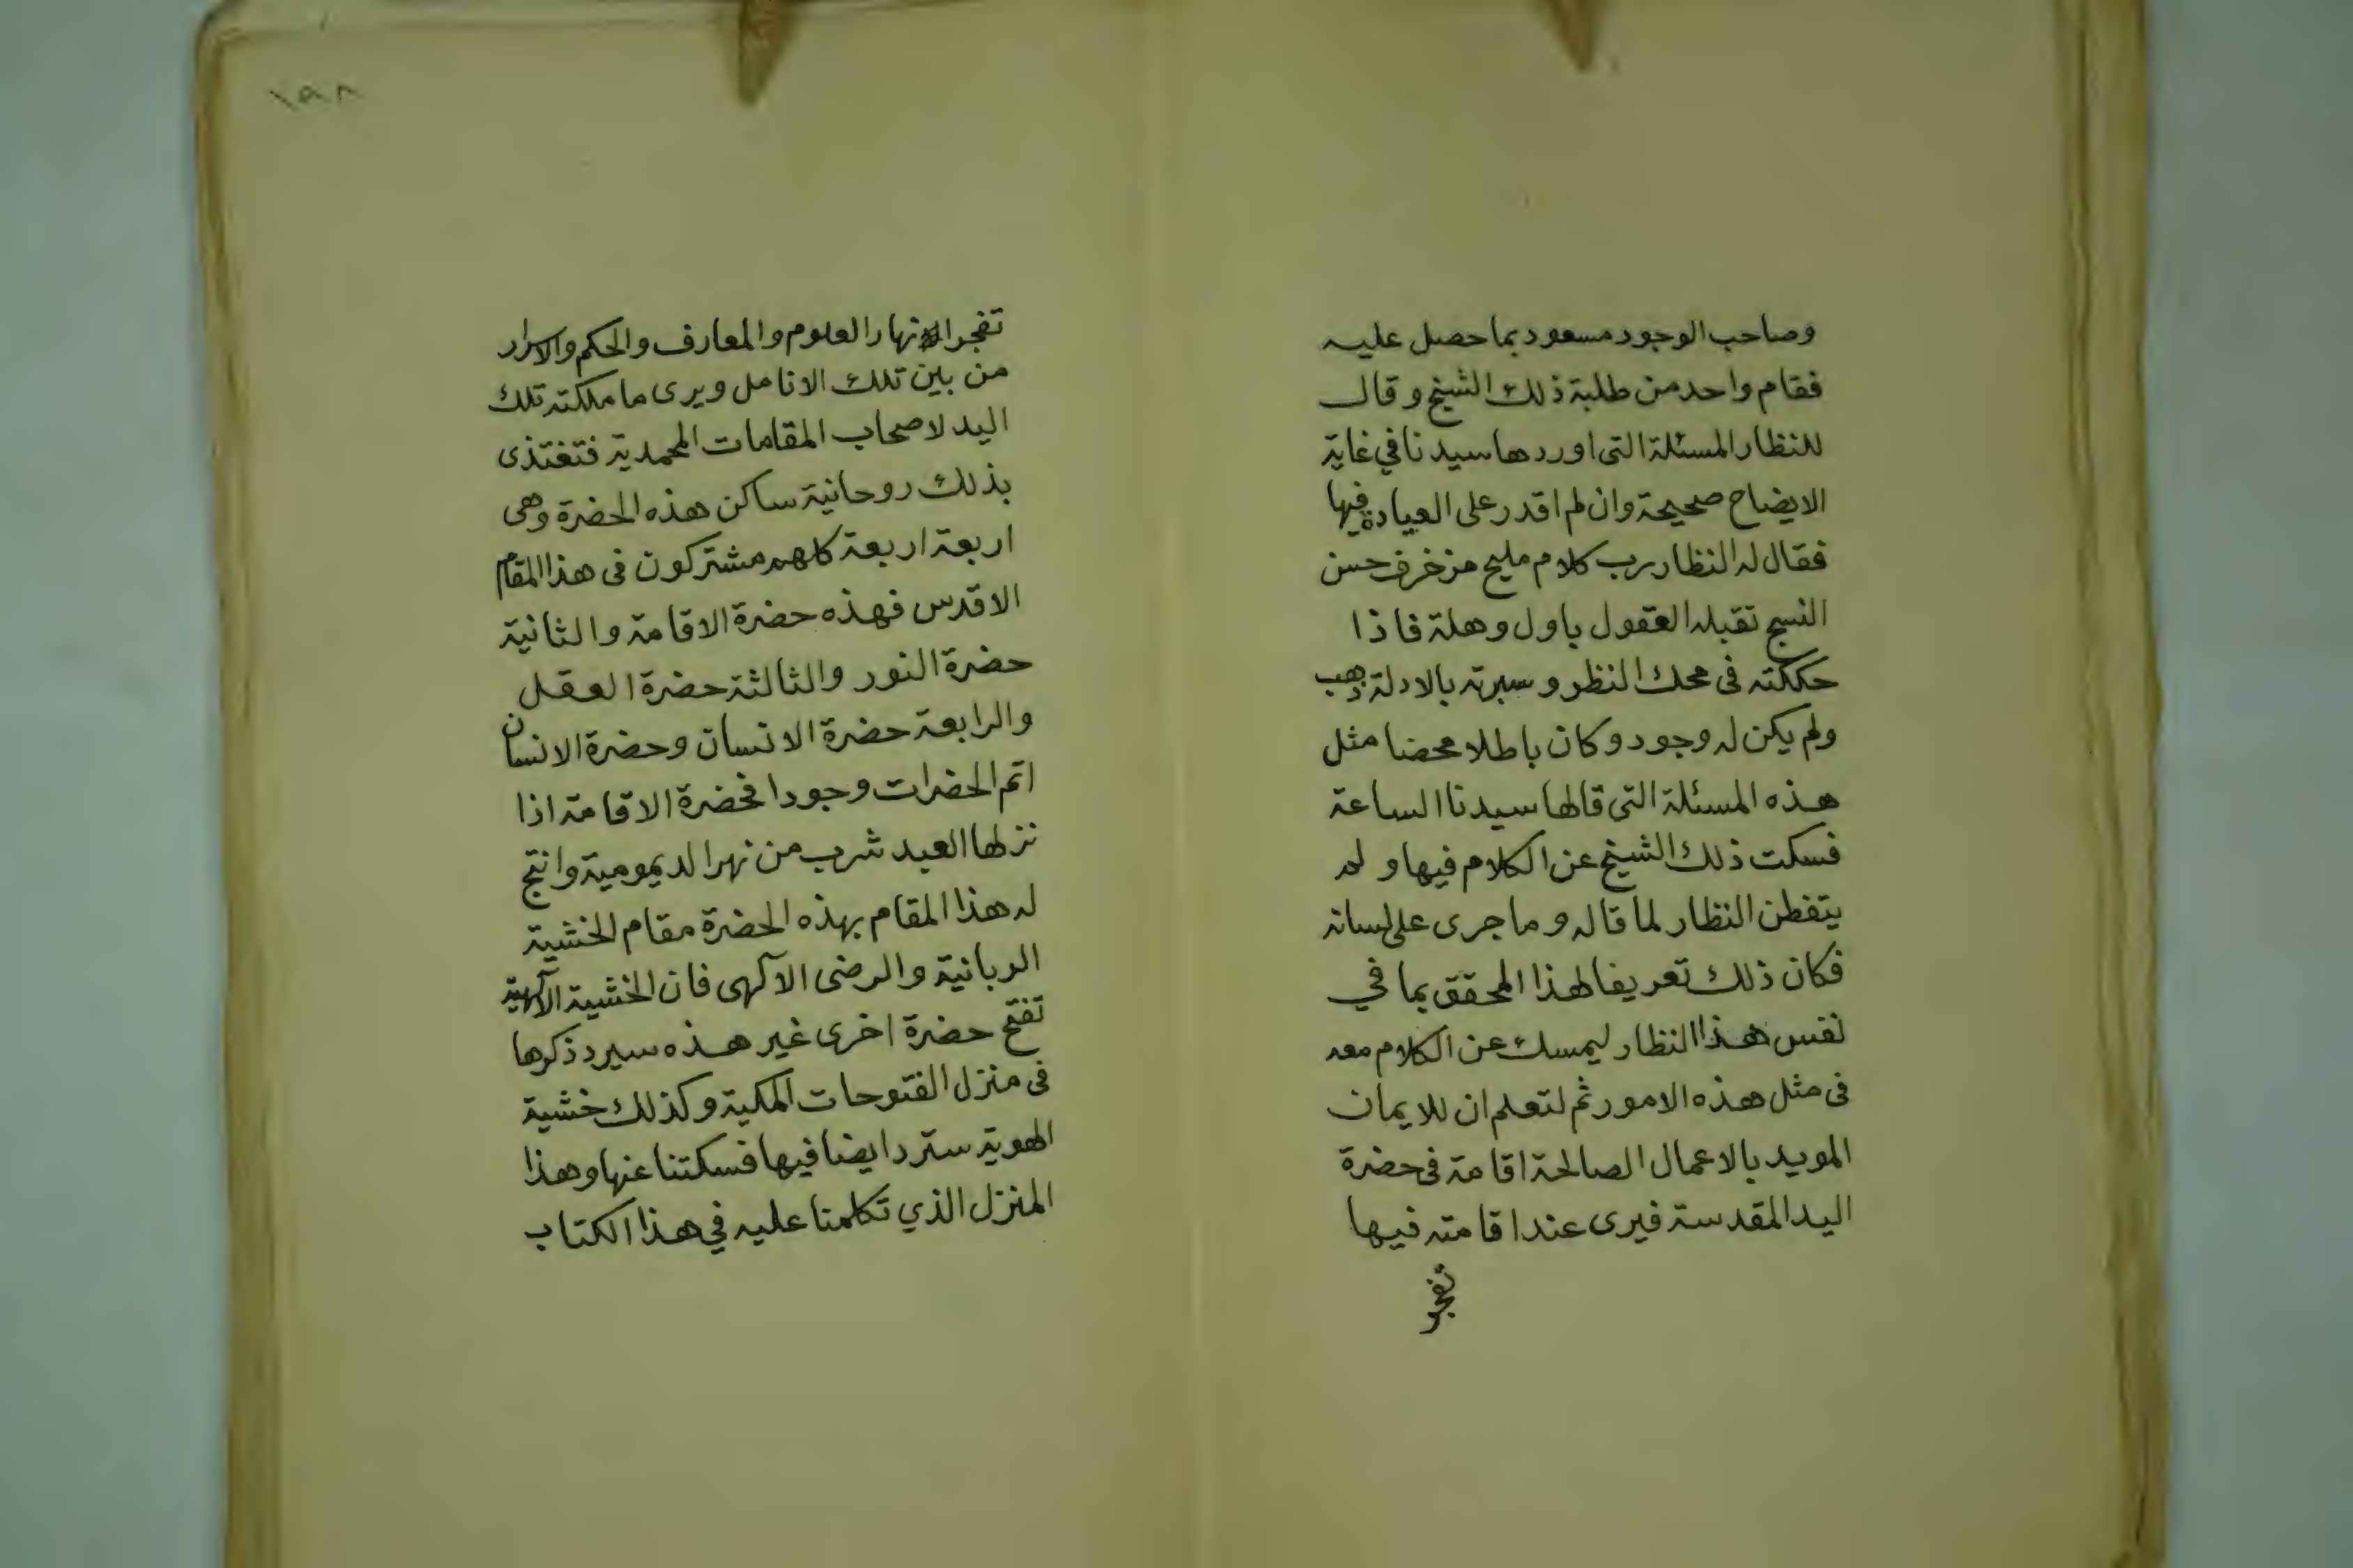 وصاحب الوجود مسعود بما حصل عليه
فقام واحد من طلبة ذلك الشيخ وقال
للنظار المسئلة التى اوردها سيدنا في غاية
الايضاح صحيحة وان لم اقدر على العبادة فيها
فقال له النظار رب كلام مليح مزخرف حسن
النسج تقبله العقول باول وهلة فاذا
حككته فى محك النظر وسبرته بالادلة ذهب
ولم يكن له وجود وكان باطلا محضا مثل
هذه المسئلة التى قالها سيدنا الساعة
فسكت ذلك الشيخ عن الكلام فيها ولم
يتفطن النظار لما قاله وما جرى على لسانه
فكان ذلك تعريفا لهذا المحقق بما في
نفس هذا النظار ليمسك عن الكلام معه
فى مثل هذه الامور ثم لتعلم ان للايمان
المويد بالاعمال الصالحة اقامة فى حضرة
اليد المقدسة فيرى عند اقامته فيها
تفجر
١٩٨
تفجر الانهار العلوم والمعارف والحكم والاسرار
من بين تلك الانامل ويرى ما ملكته تلك
اليد لاصحاب المقامات المحمدية فتغتذى
بذلك روحانية ساكن هذه الحضرة وهى
اربعة اربعة كلهم مشتركون فى هذا المقام
الاقدس فهذه حضرة الاقامة والثانية
حضرة النور والثالثة حضرة العقل
والرابعة حضرة الانسان وحضرة الانسان
اتم الحضرات وجودا فحضرة الاقامة اذا
نزلها العبد شرب من نهر الديمومية وانتج
له هذا المقام بهذه الحضرة مقام الخشية
الربانية والرضى الآلهى فان الخشية الآلهية
تفتح حضرة اخرى غير هذه سيرد ذكرها
فى منزل الفتوحات المكية وكذلك خشية
الهوية سترد ايضا فيها فسكتنا عنها وهذا
المنزل الذي تكلمنا عليه في هذا الكتاب